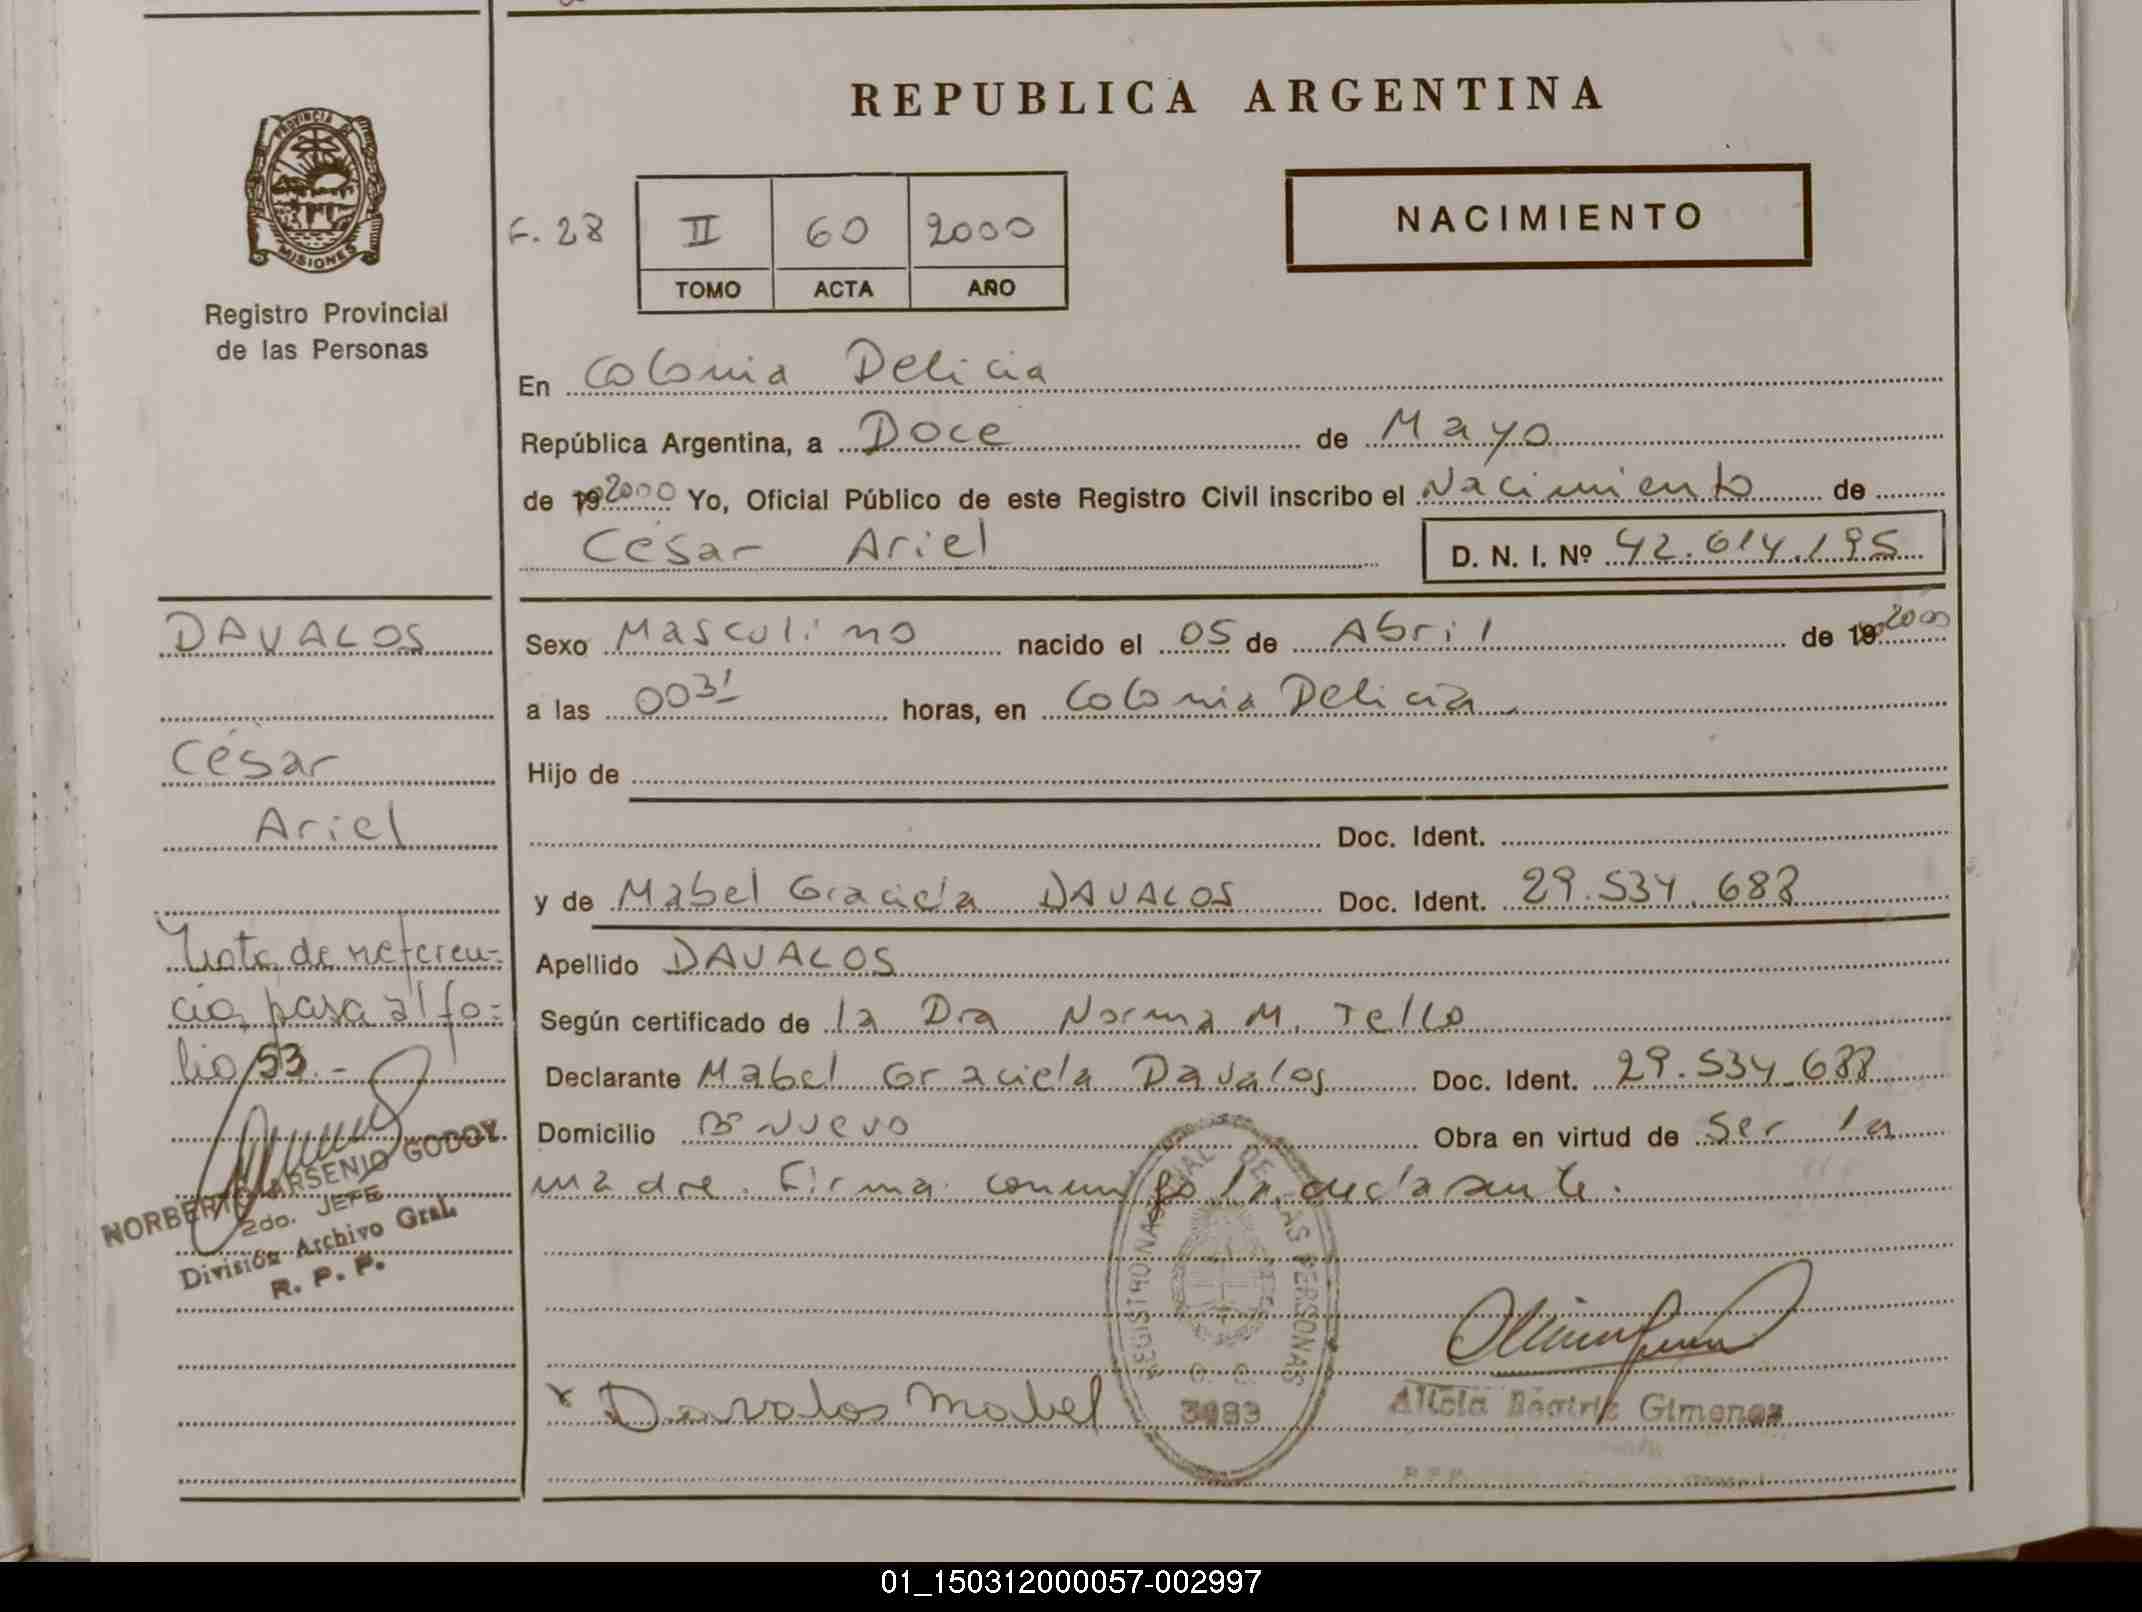 REPUBLICA ARGENTINA
PROVINCIA DE
MISIONES
Registro Provincial
de las Personas
F. 28
II 60 2000
TOMO ACTA AÑO
NACIMIENTO
En Colonia Delicia
República Argentina, a Doce de Mayo
de 19 2000 Yo, Oficial Público de este Registro Civil inscribo el Nacimiento de
César Ariel D. N. I. Nº 42.614.195
DAVALOS
César
Ariel
Nota de referen-
cia, pasa al fo-
lio 53.-
NORBERTO ARSENIO GODOY
2do. JEFE
División Archivo Gral.
R. P. P.
Sexo Masculino nacido el 05 de Abril de 19 2000
a las 0031 horas, en Colonia Delicia.
Hijo de
Doc. Ident.
y de Mabel Graciela DAVALOS Doc. Ident. 29.534.688
Apellido DAVALOS
Según certificado de la Dra Norma M. Tello
Declarante Mabel Graciela Davalos Doc. Ident. 29.534.688
Domicilio Bº Nuevo Obra en virtud de ser la
madre. Firma conmigo la declarante.
REGISTRO NACIONAL DE LAS PERSONAS
3983
x Davalos Mabel
Alicia Beatriz Gimenez
01_150312000057-002997